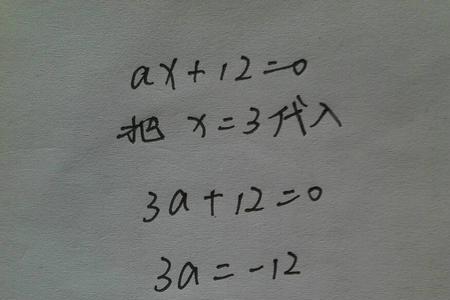 ax+12=0
把 x=3代入
3a+12=0
3a=-12